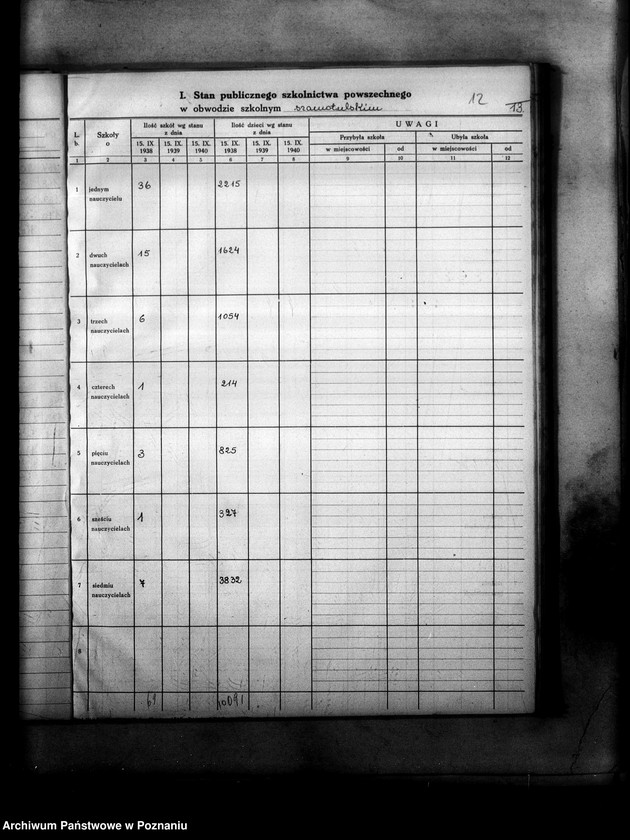 I. Stan publicznego szkolnictwa powszechnego
w obwodzie szkolnym szamotulskim
12
13.
L. b.
Szkoły o
Ilość szkół wg stanu z dnia
Ilość dzieci wg stanu z dnia
UWAGI
Przybyła szkoła
Ubyła szkoła
15. IX. 1938
15. IX. 1939
15. IX. 1940
15. IX. 1938
15. IX. 1939
15. IX. 1940
w miejscowości
od
w miejscowości
od
1 2 3 4 5 6 7 8 9 10 11 12
1 jednym nauczycielu 36 2215
2 dwuch nauczycielach 15 1624
3 trzech nauczycielach 6 1054
4 czterech nauczycielach 1 214
5 pięciu nauczycielach 3 825
6 sześciu nauczycielach 1 327
7 siedmiu nauczycielach 7 3832
8
69 10091
Archiwum Państwowe w Poznaniu